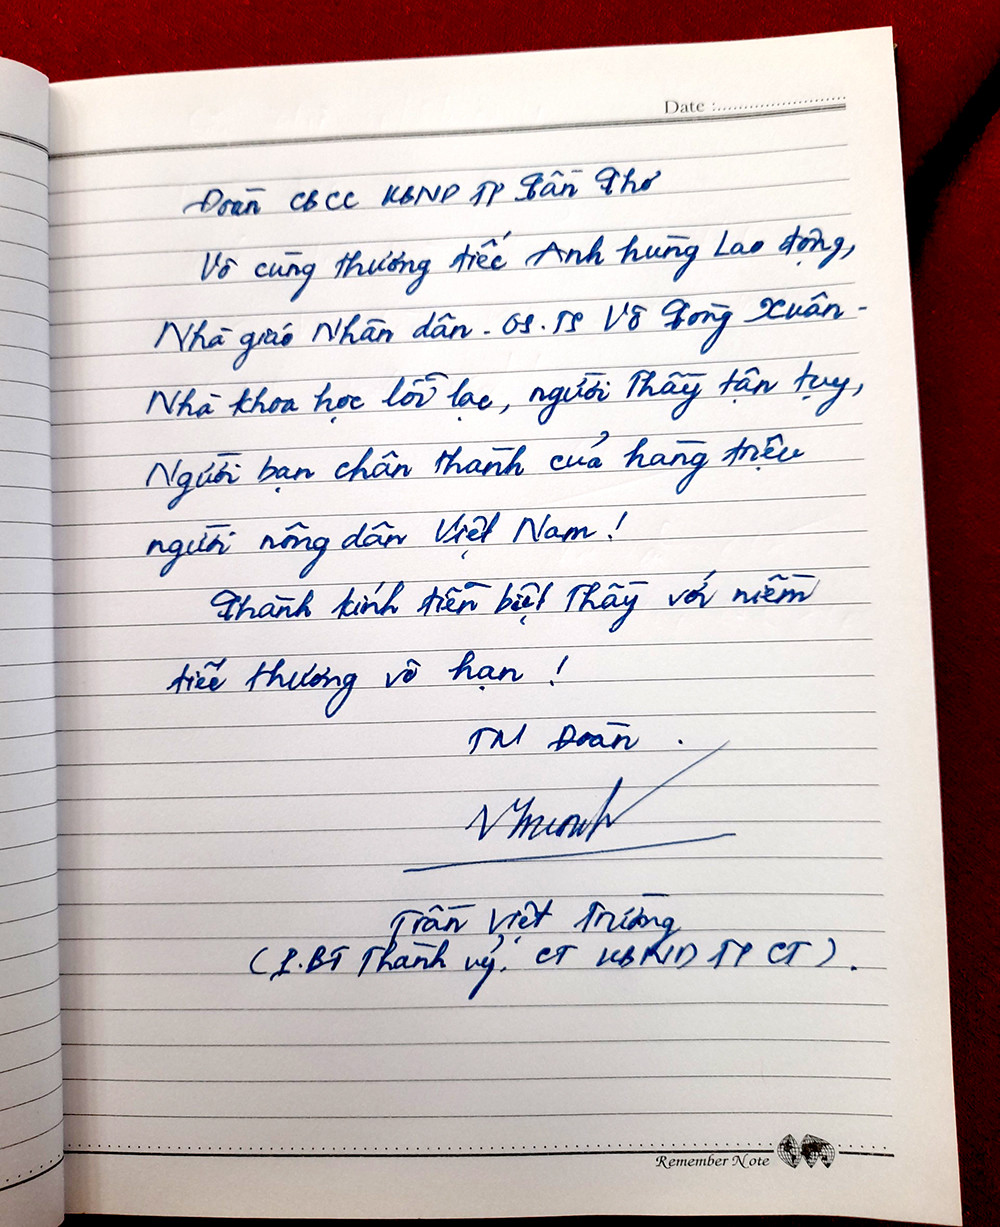 Date :..........................
Đoàn CBCC UBND TP Cần Thơ
Vô cùng thương tiếc Anh hùng Lao động,
Nhà giáo Nhân dân - GS.TS Võ Tòng Xuân -
Nhà khoa học lỗi lạc, người Thầy tận tụy,
Người bạn chân thành của hàng triệu
người nông dân Việt Nam !
Thành kính tiễn biệt Thầy với niềm
tiếc thương vô hạn !
TM Đoàn .
Trần Việt Trường
(P.BT Thành ủy, CT UBND TP CT) .
Remember Note